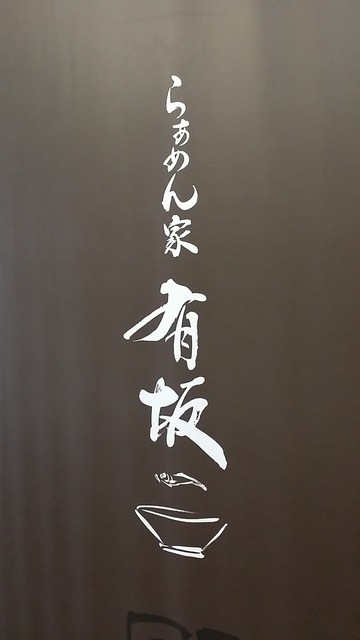 らぁめん家
有坂